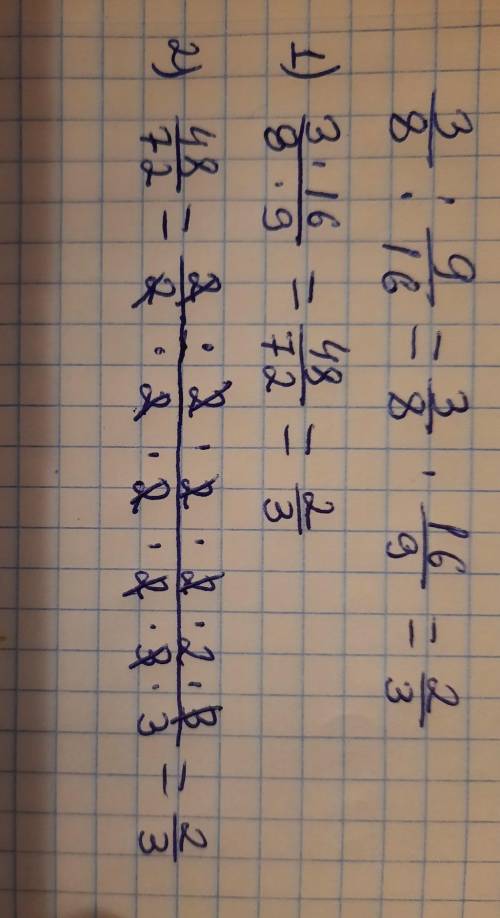 3/8 : 9/16 = 3/8 · 16/9 = 2/3
1) 3 · 16/8 · 9 = 48/72 = 2/3
2) 48/72 = 2 · 2 · 2 · 2 · 2 · 3/2 · 2 · 2 · 2 · 3 · 3 = 2/3